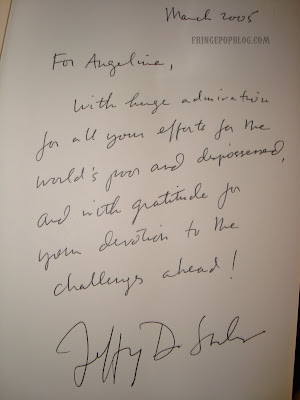 March 2005
FRINGEPOPBLOG.COM
For Angelina,
With huge admiration
for all your efforts for the
world's poor and dispossessed,
and with gratitude for
your devotion to the
challenges ahead!
Jeffrey D. Sachs